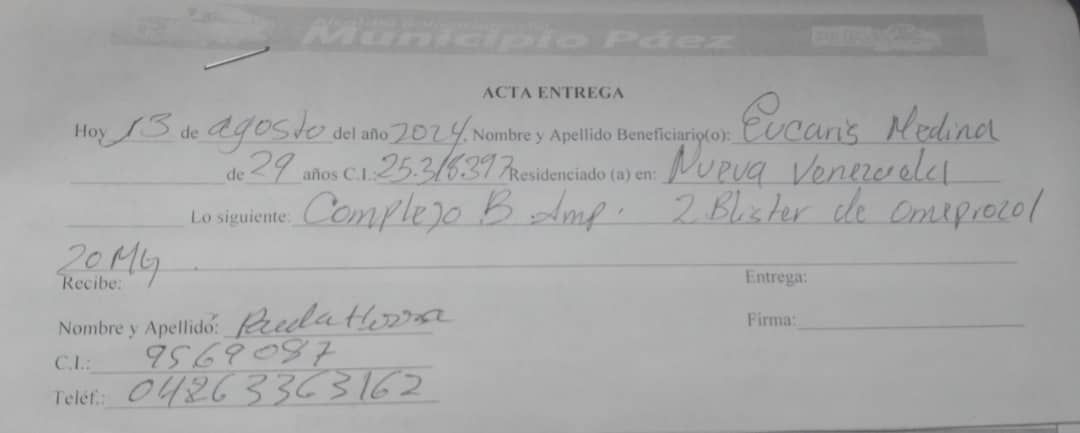 Municipio Páez
ACTA ENTREGA
Hoy 13 de agosto del año 2024. Nombre y Apellido Beneficiario(o): Eucaris Medina
de 29 años C.I.: 25.318.397 Residenciado (a) en: Nueva Venezuela
Lo siguiente: Complejo B Amp. 2 Blister de omeprozol
20 MG.
Recibe: Entrega:
Nombre y Apellido: Firma:
C.I.: 9569087
Teléf.: 04263363162